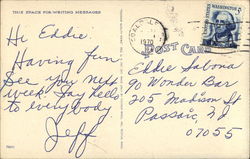 THIS SPACE FOR WRITING MESSAGES
Hi Eddie.
Having fun
See you next
week. Say hello
to everybody
Jeff
1970
POST CARD
WASHINGTON
Eddie Sabona
90 Wonder Bar
205 Madison St
Passaic, NJ
07055